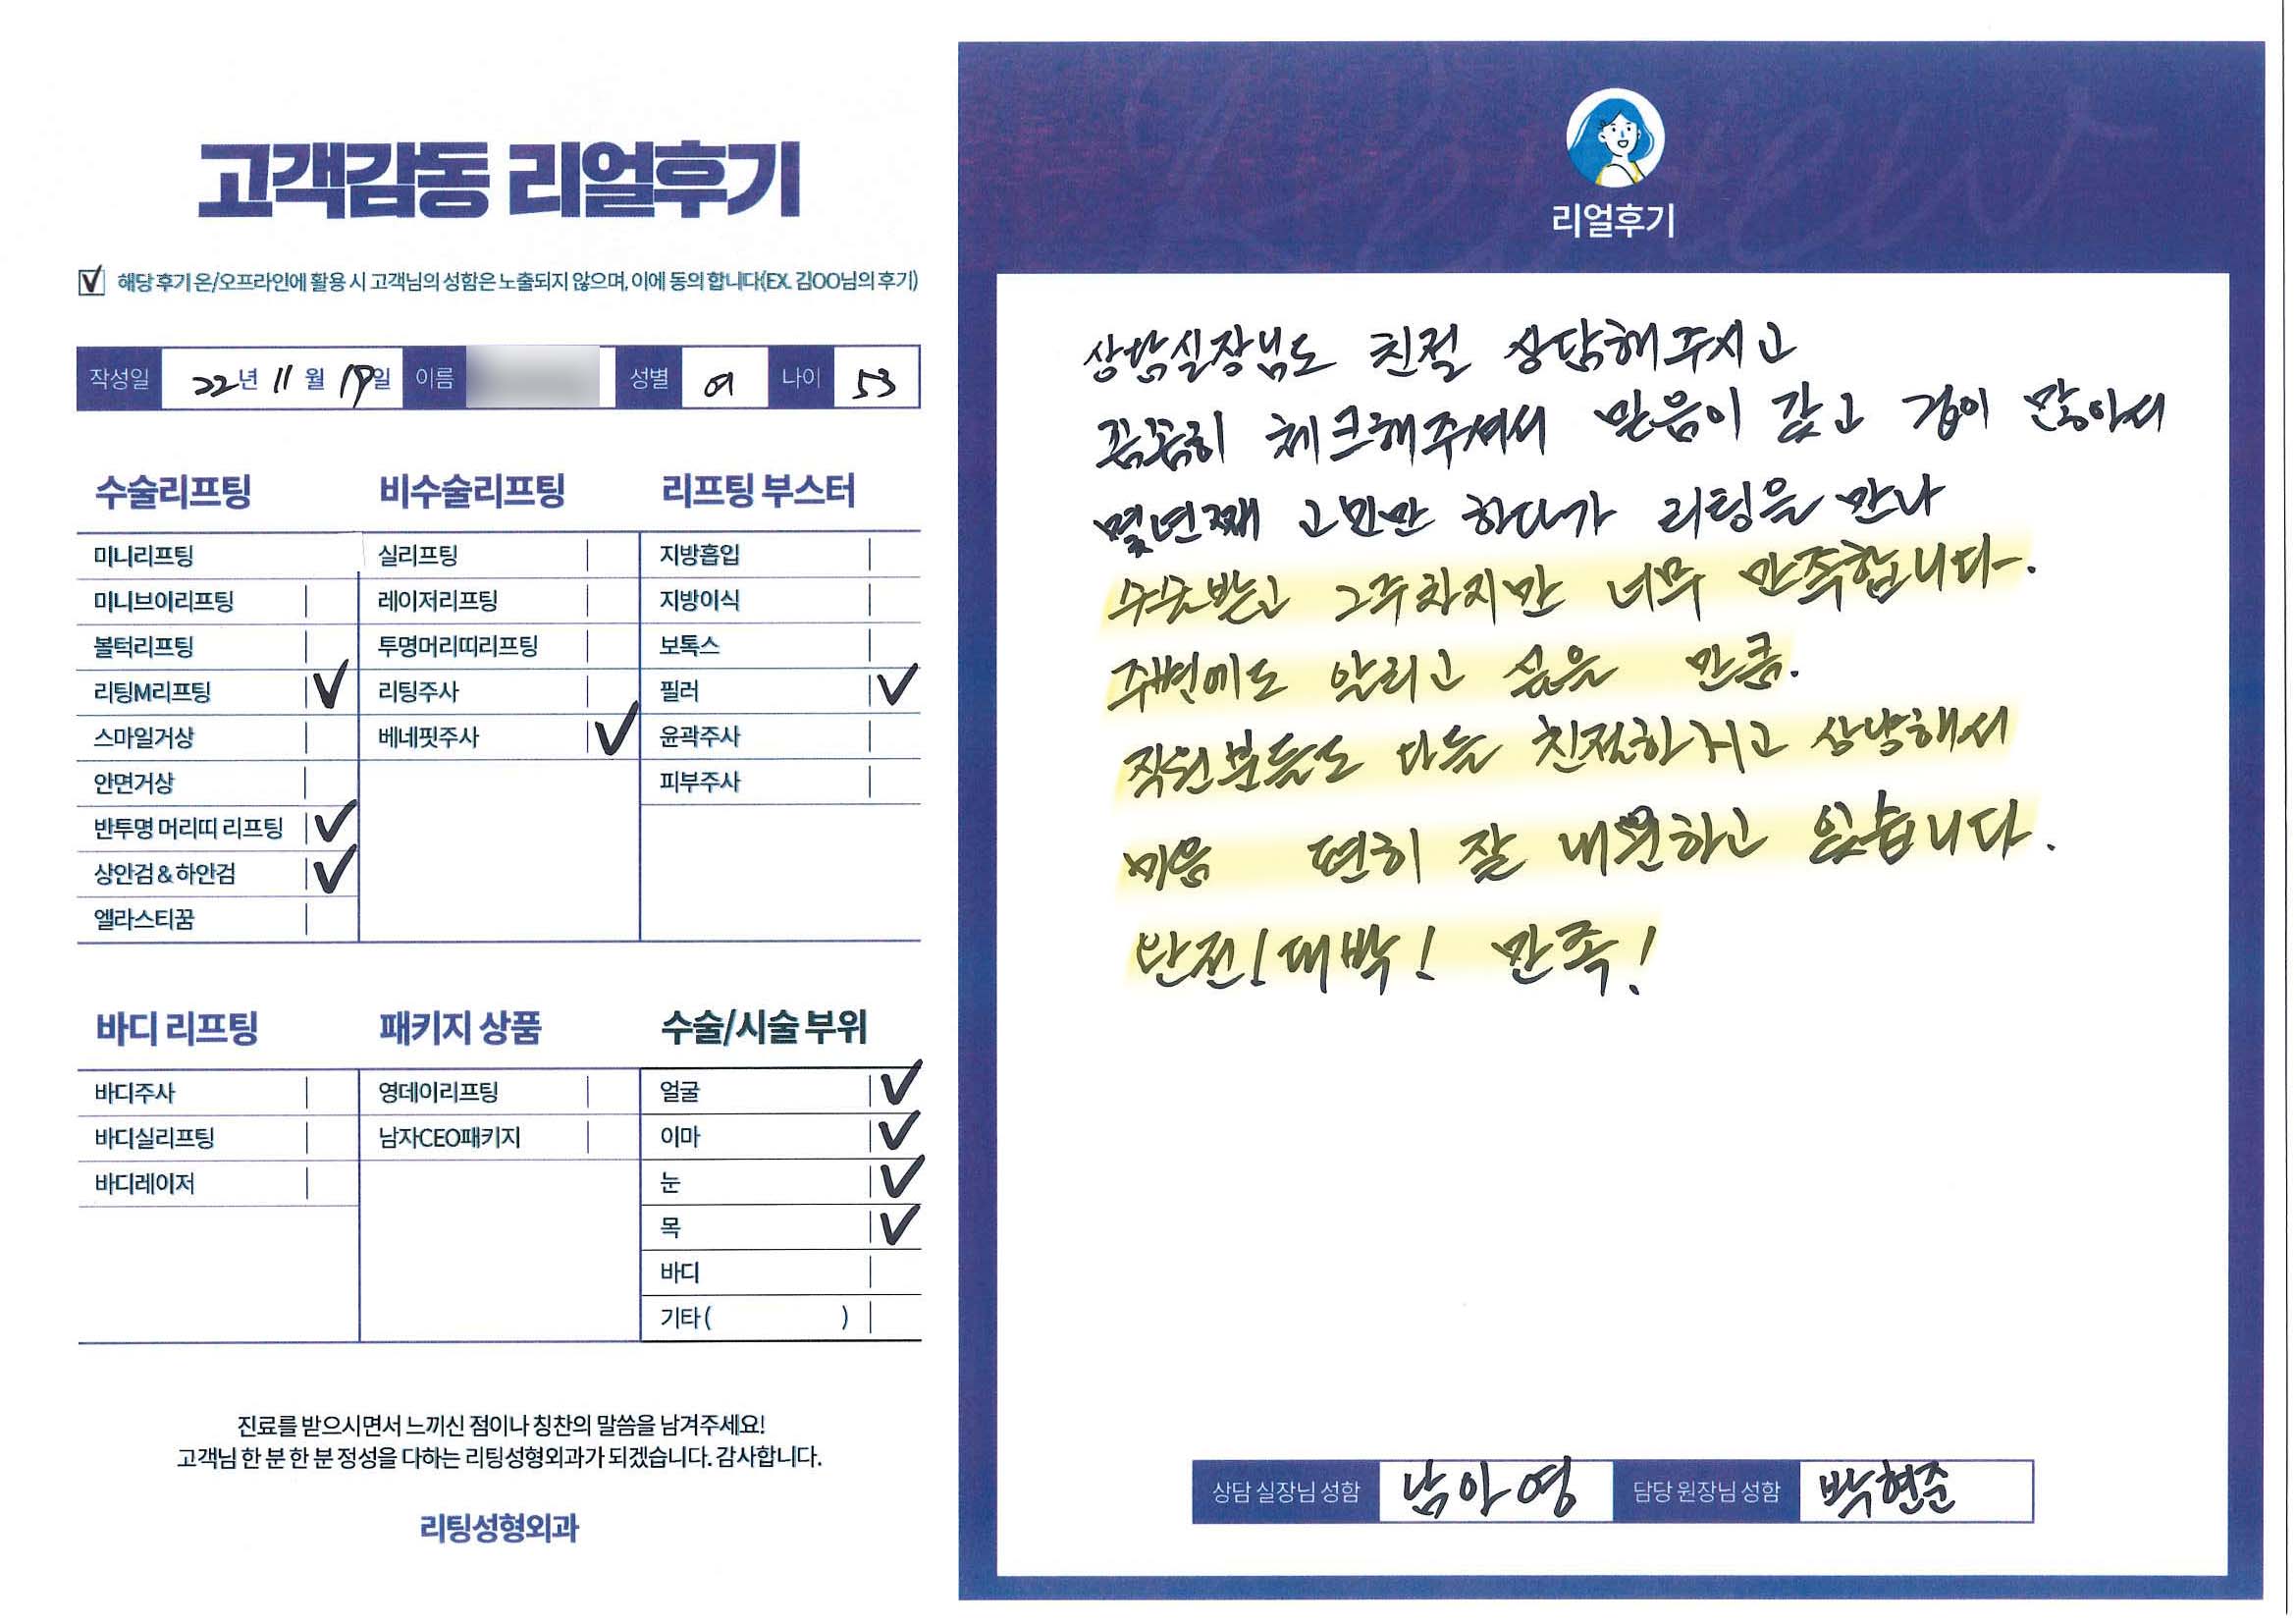 고객감동 리얼후기
해당 후기 온/오프라인에 활용 시 고객님의 성함은 노출되지 않으며, 이에 동의 합니다(EX. 김OO님의 후기)
작성일 22년 11월 19일 이름 성별 여 나이 53
수술리프팅
미니리프팅
미니브이리프팅
볼턱리프팅
리팅M리프팅
스마일거상
안면거상
반투명 머리띠 리프팅
상안검 & 하안검
엘라스티꿈
비수술리프팅
실리프팅
레이저리프팅
투명머리띠리프팅
리팅주사
베네핏주사
리프팅 부스터
지방흡입
지방이식
보톡스
필러
윤곽주사
피부주사
바디 리프팅
바디주사
바디실리프팅
바디레이저
패키지 상품
영데이리프팅
남자CEO패키지
수술/시술 부위
얼굴
이마
눈
목
바디
기타 ( )
진료를 받으시면서 느끼신 점이나 칭찬의 말씀을 남겨주세요!
고객님 한 분 한 분 정성을 다하는 리팅성형외과가 되겠습니다. 감사합니다.
리팅성형외과
Review
리얼후기
상담실장님도 친절 상담해주시고
꼼꼼히 체크해주셔서 믿음이 갔고 겁이 많아서
몇년째 고민만 하다가 리팅을 만나
수술받고 2주차지만 너무 만족합니다.
주변에도 알리고 싶은 만큼.
직원분들도 다들 친절하시고 상냥해서
마음 편히 잘 내원하고 있습니다.
안전! 대박! 만족!
상담 실장님 성함 남아영 담당 원장님 성함 박현준